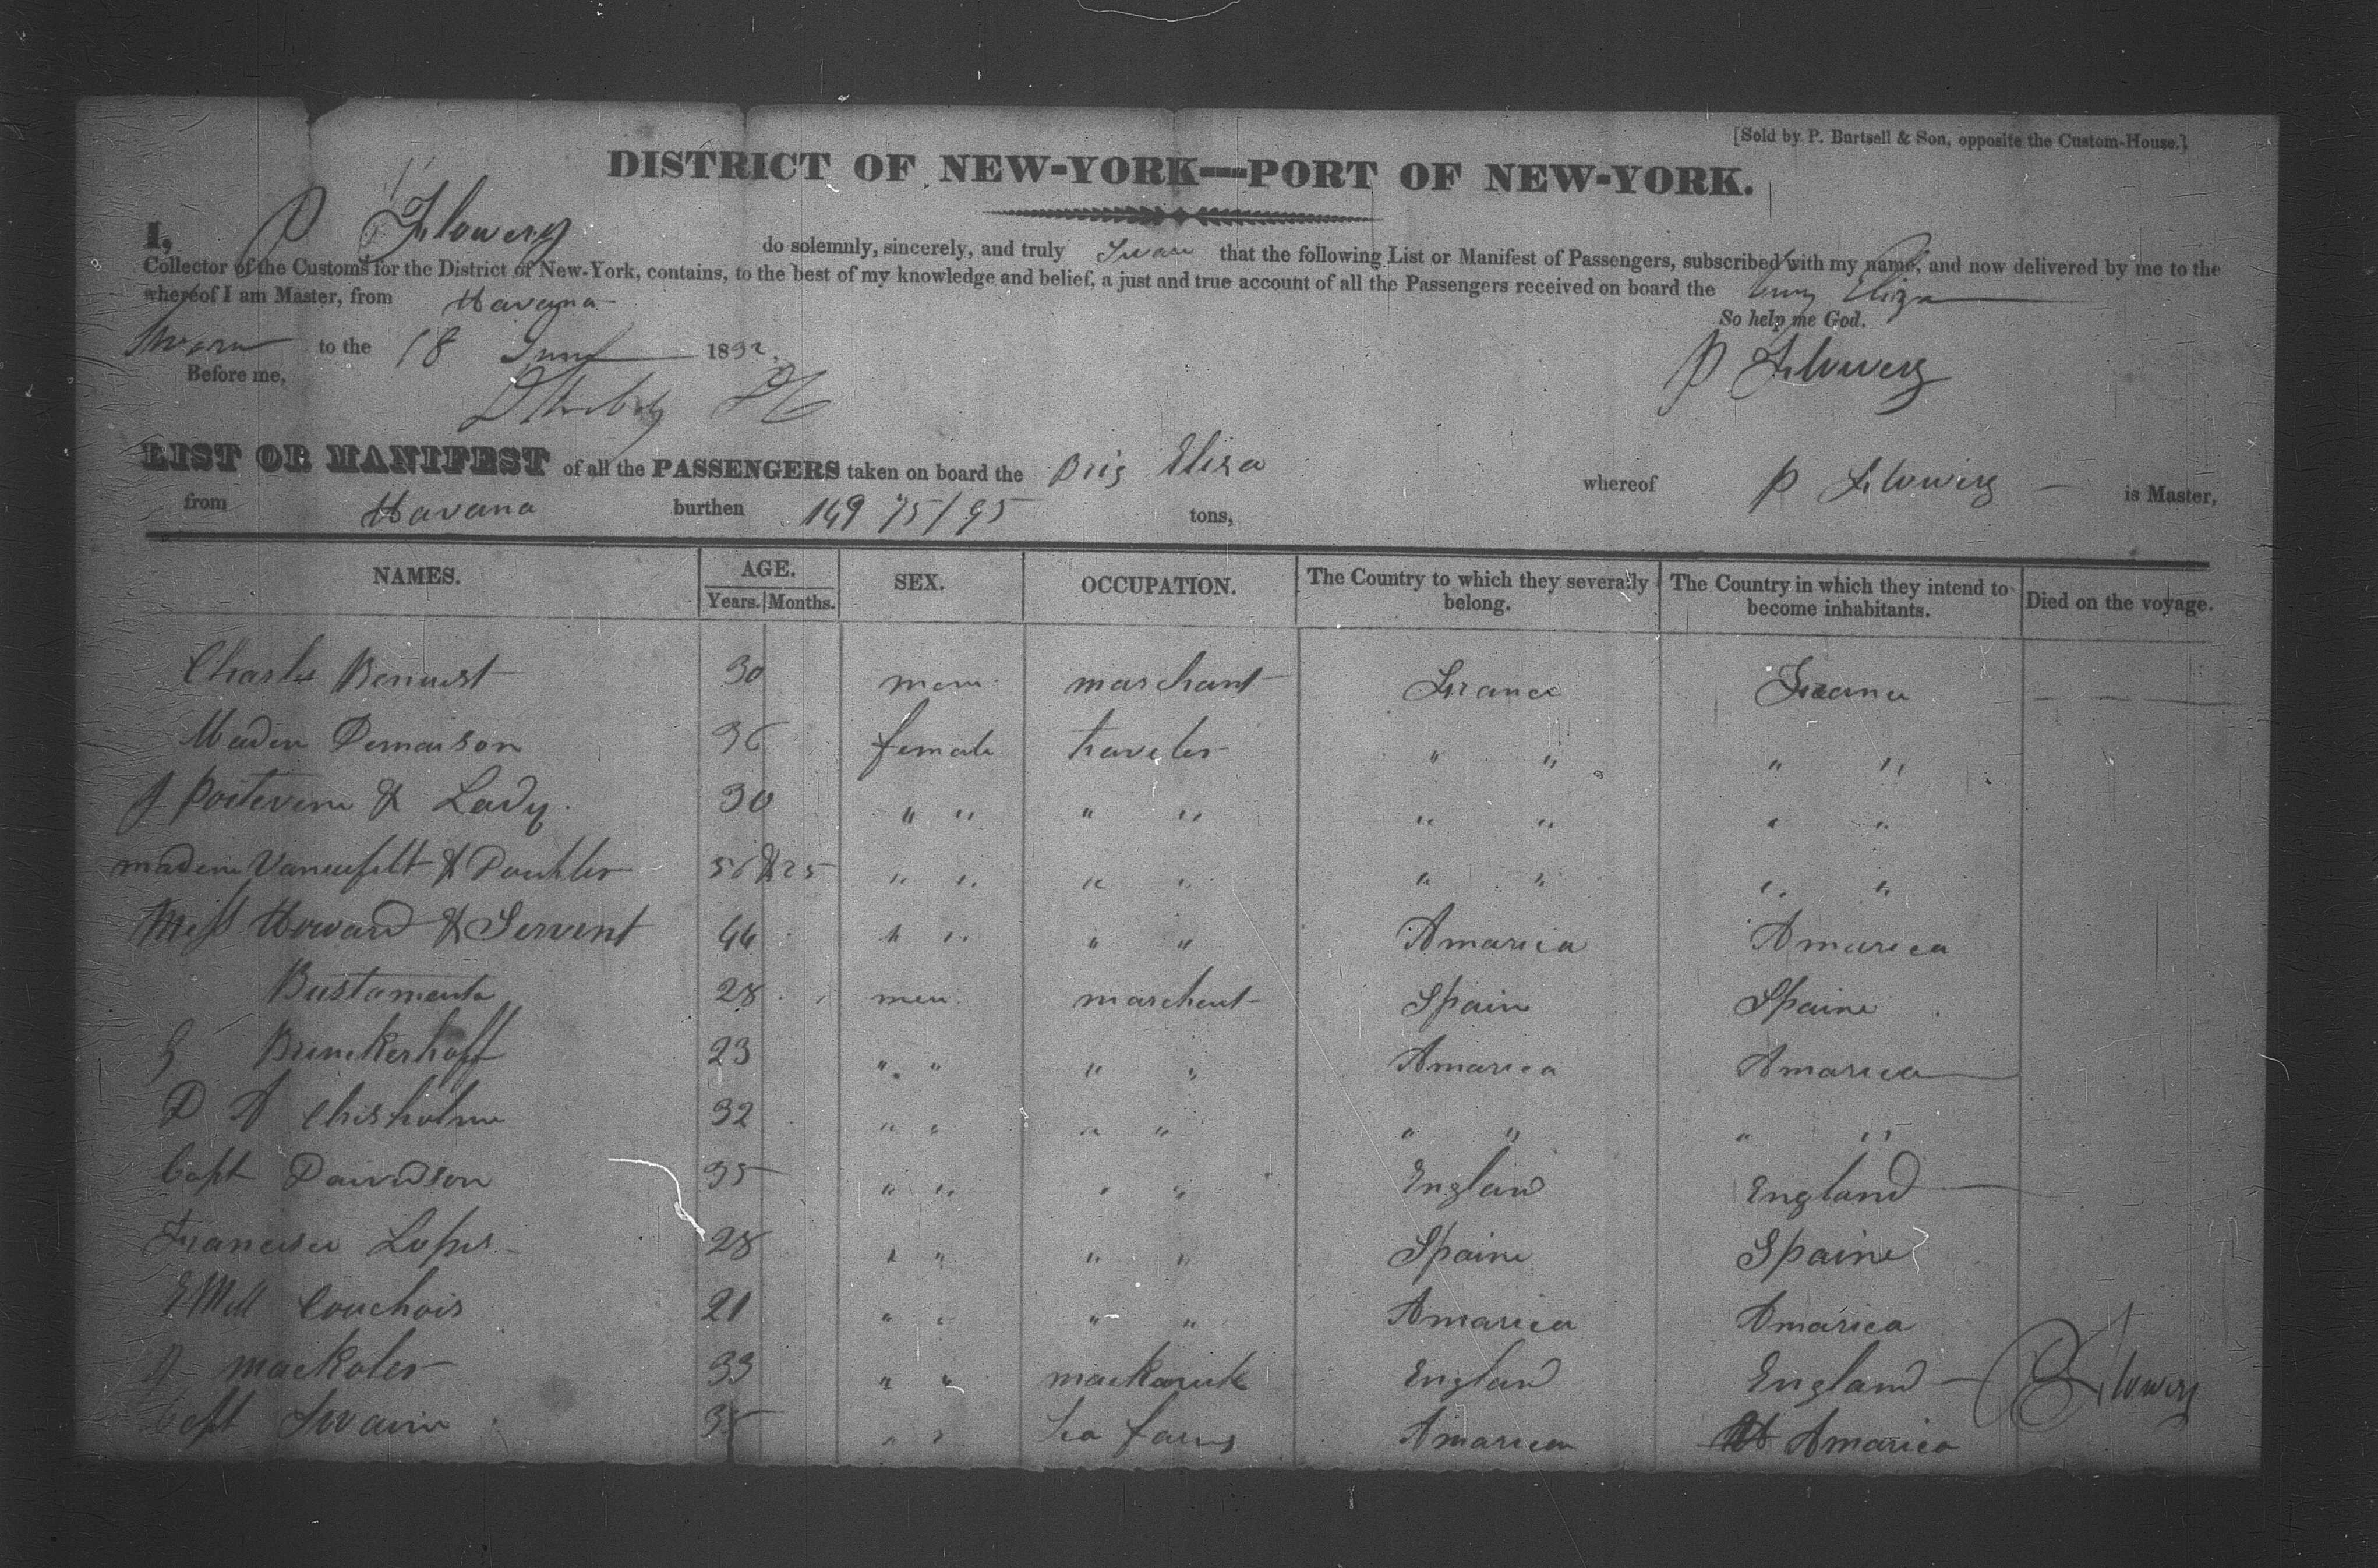 [Sold by P. Burtsell & Son, opposite the Custom-House.]
DISTRICT OF NEW-YORK—PORT OF NEW-YORK.
I, P Flowery do solemnly, sincerely, and truly Swear that the following List or Manifest of Passengers, subscribed with my name, and now delivered by me to the
Collector of the Customs for the District of New-York, contains, to the best of my knowledge and belief, a just and true account of all the Passengers received on board the Eliza
whereof I am Master, from Havana
So help me God.
Sworn to the 18 June 1832.
P Flowery
Before me,
LIST OR MANIFEST of all the PASSENGERS taken on board the Brig Elisa whereof P Flowery is Master,
from Havana burthen 149 75/95 tons,
NAMES. AGE. SEX. OCCUPATION. The Country to which they severally belong. The Country in which they intend to become inhabitants. Died on the voyage.
Years. Months.
Charles 30 men marchant France France
Madm Demaison 36 female traveler " " " "
J Poitevin & Lady. 30 " " " " " " " "
madm & 56 & 25 " " " " " " " "
Miss Howard & Servent 44 " " " " Amarica Amarica
Bustamente 28 men marchent Spain Spaine
G Brinckerhoff 23 " " " " Amarica Amarica
D A Chisholme 32 " " " " " " " "
Capt Davidson 35 " " " " England England
Francisco Lopes 28 " " " " Spaine Spaine
Couchois 21 " " " " Amarica Amarica
33 " " England England
Capt Swain 35 " " Sea Amarica Amarica
P Flowery